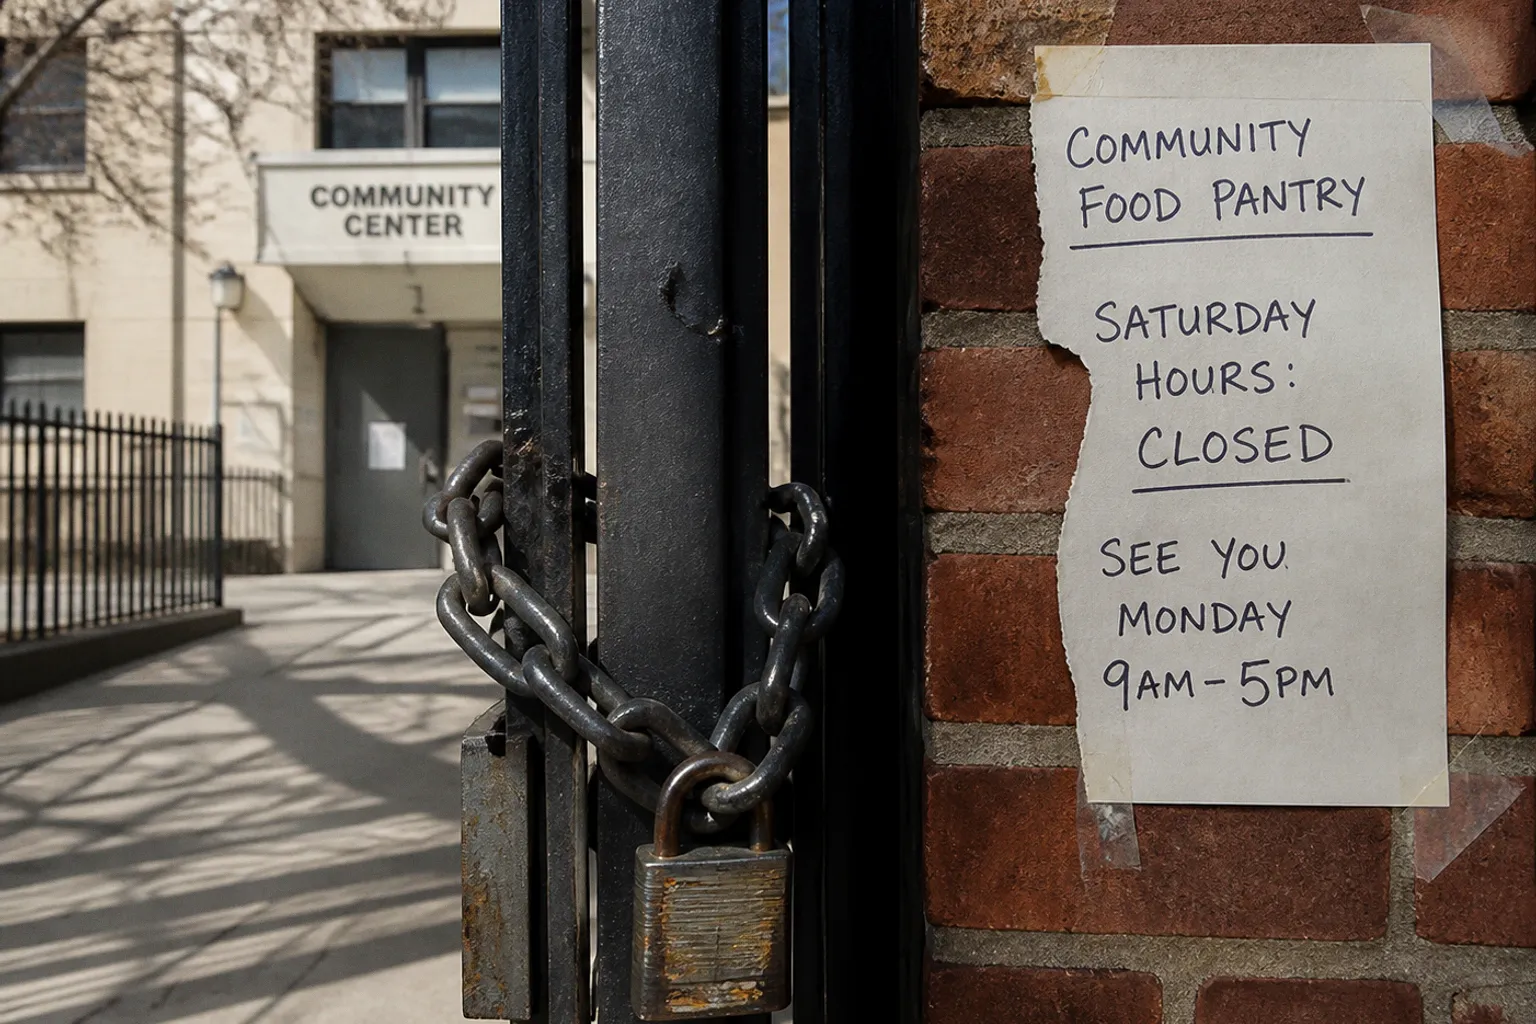 COMMUNITY
CENTER
COMMUNITY
FOOD PANTRY
SATURDAY
HOURS:
CLOSED
SEE YOU
MONDAY
9AM – 5PM